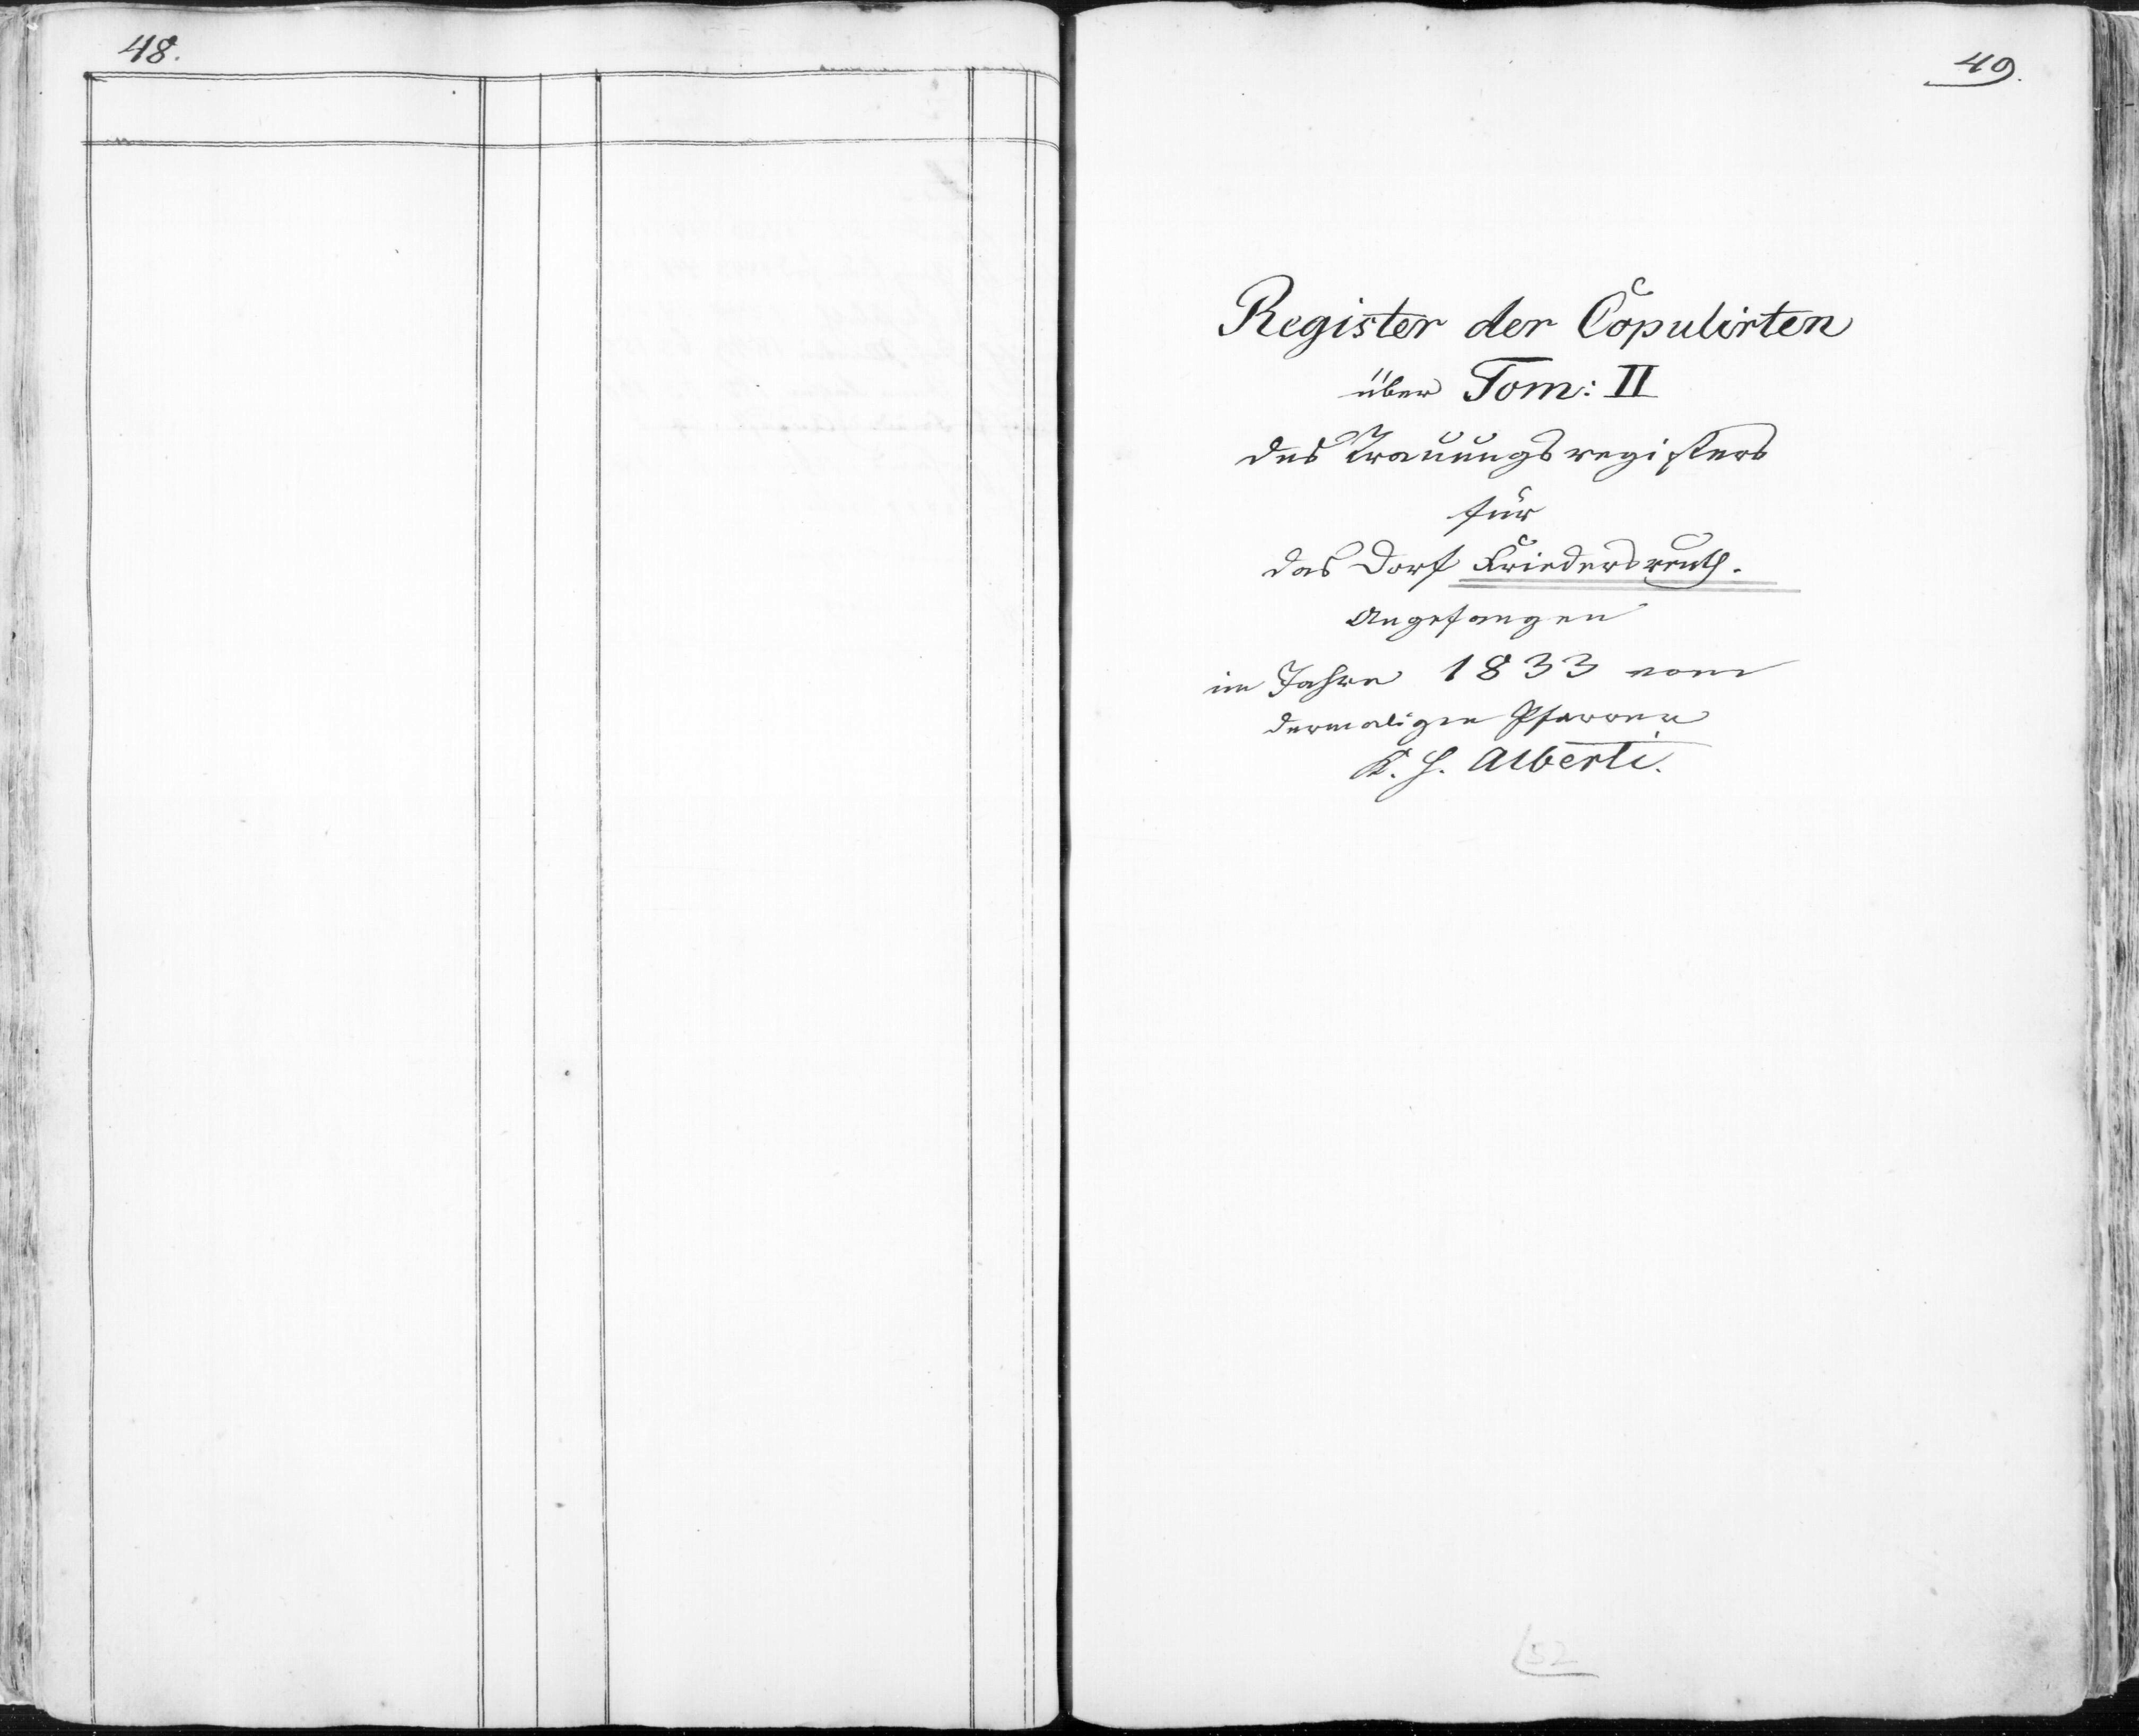 48.
49.
Register der Copulirten
über Tom: II
des Trauungsregisters
für
das Dorf Friedersreuth.
Angefangen
im Jahre 1833 vom
dermaligen Pfarrer
K. H. Alberti.
52